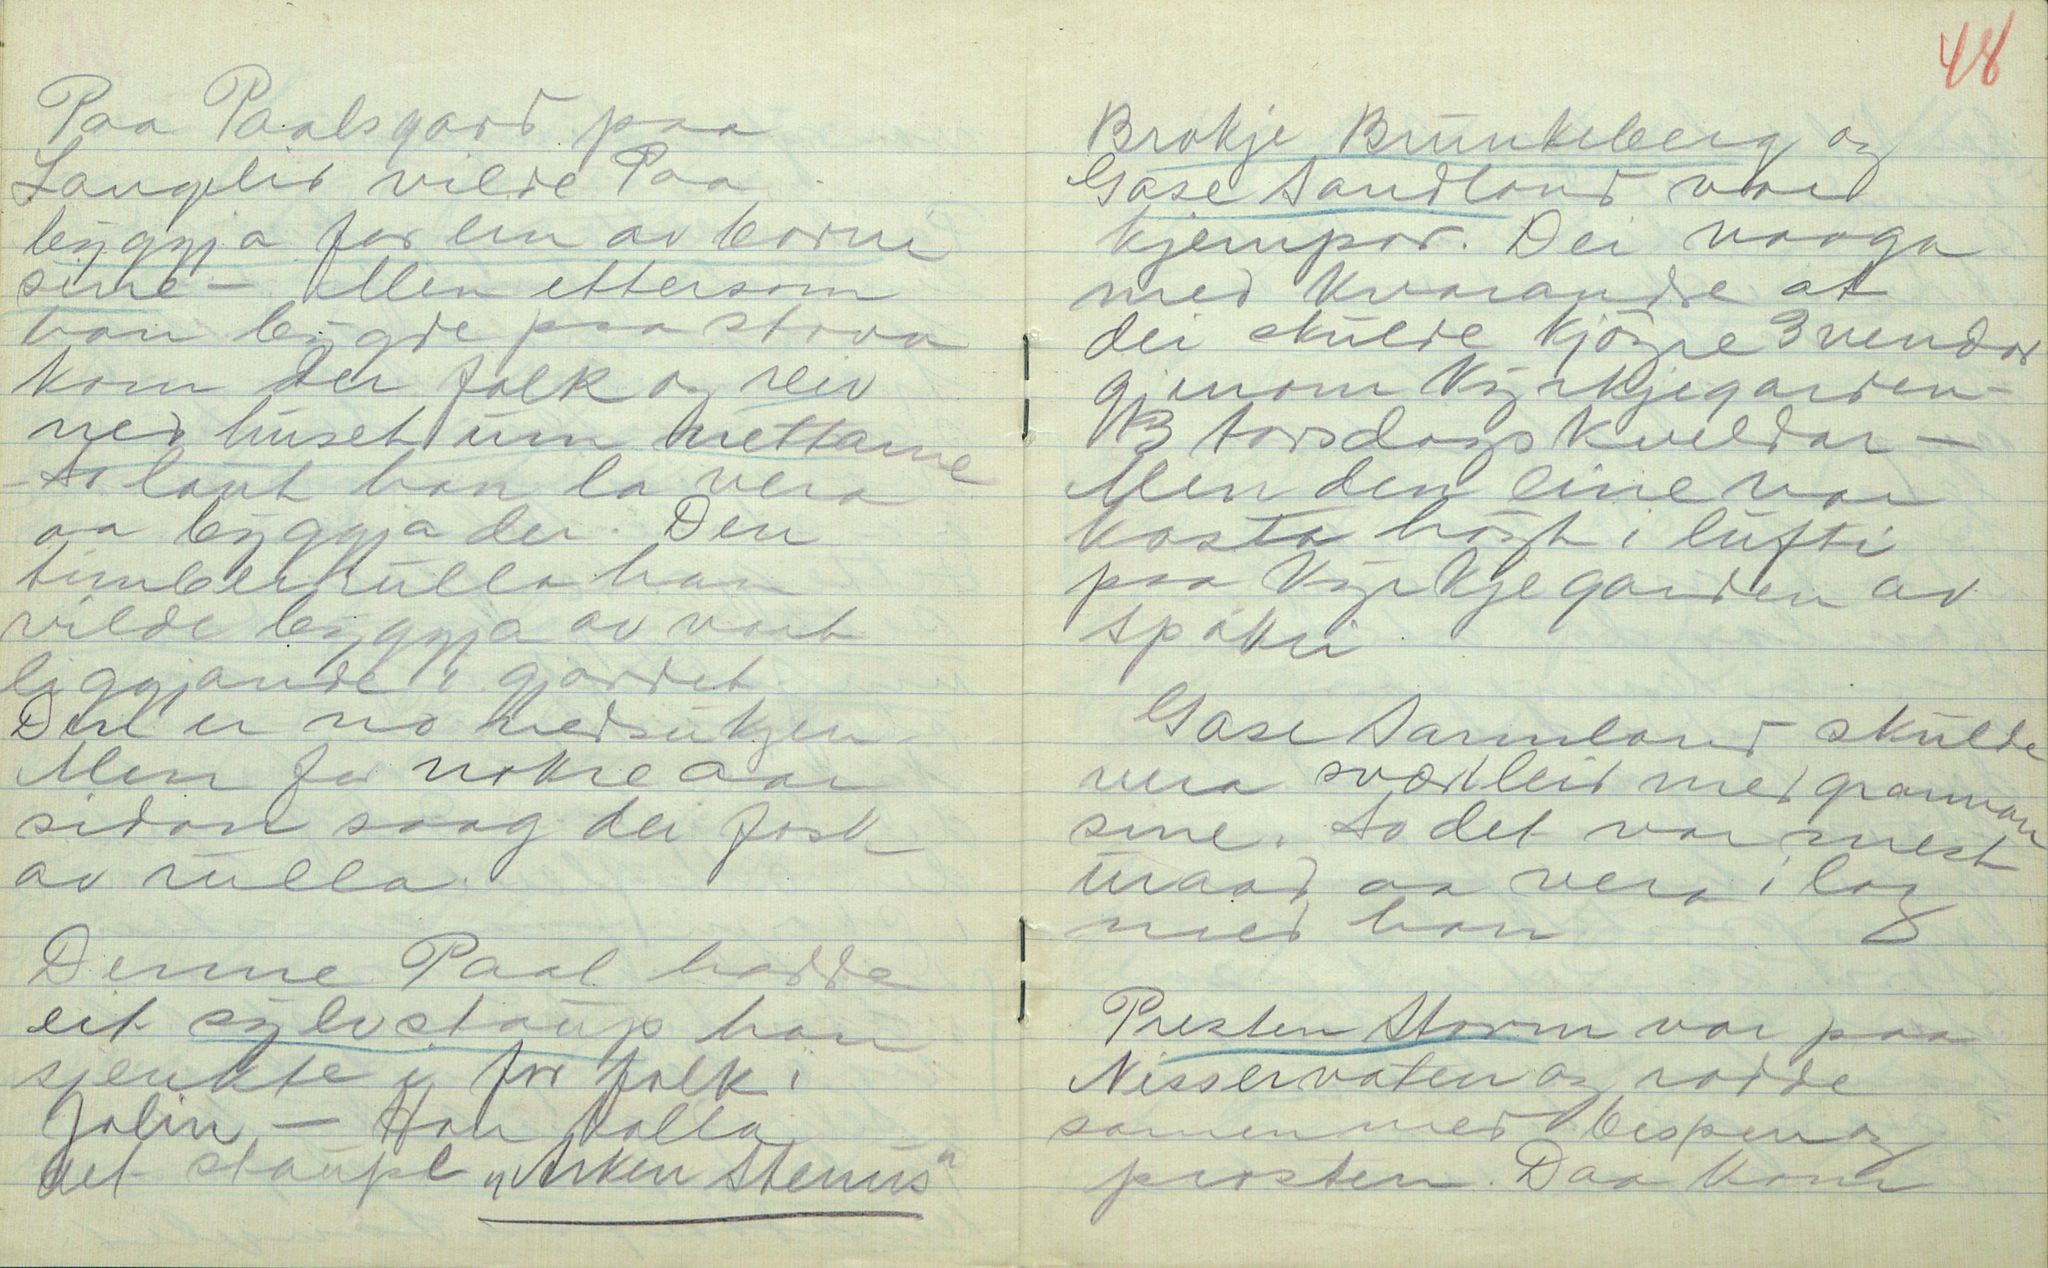 Paa Paalsgard paa
Langlid vilde Paa
byggja for ein av borni
sine – Men ettersom
han bygde paa stova
kom der folk og reiv
ned huset um nettane
– So laut han la vera
aa byggja der. Den
timberrulla han
vilde byggja av vart
liggjande i gjordet.
Den er no nedsukjen
Men for nokre aar
sidan saag dei josk
av rulla.
Denne Paal hadde
eit sylvstaup han
sjenkte i for folk i
Jolin – Han kalla
det staupe „Arken Stenus"
48
Brokje Brunkeberg og
Gase Sandland var
kjempor. Dei vaaga
med kvarandre at
dei skulde kjøyre 3 vendor
gjenom kyrkjegarden –
3 torsdags kveldar –
Men den eine var
kasta høgt i lufti
paa kyrkjegarden av
spøkri
Gase Sannland skulde
vera svært leid med grannan
sine. So det var mest
uraad aa vera i lag
med han
Presten Storm var paa
Nisservaten og rodde
saman med bispen og
prosten. Daa kom